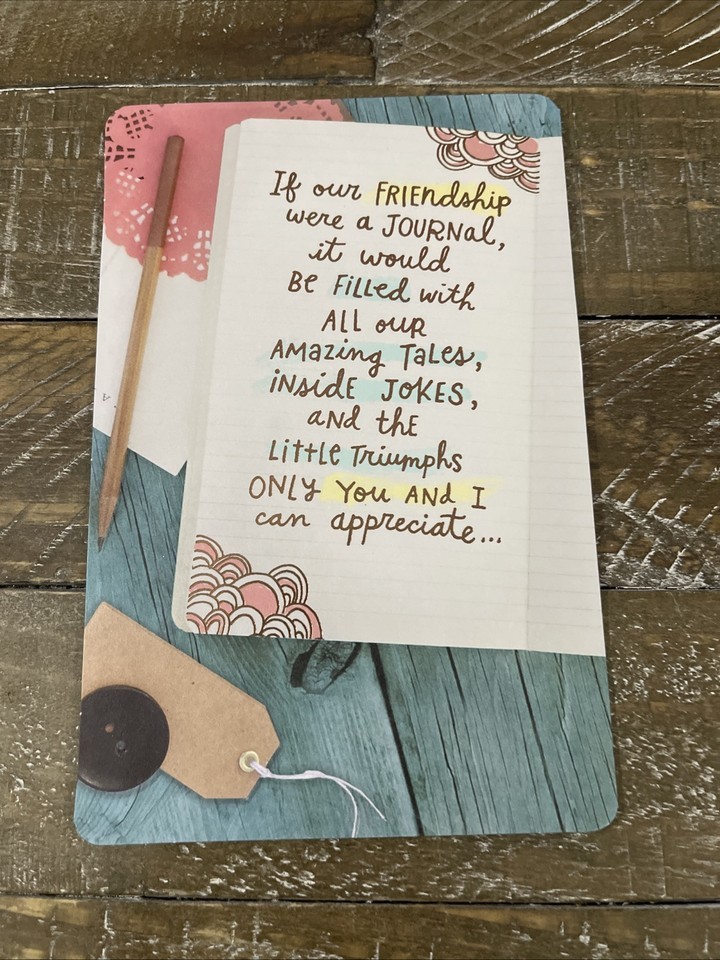 If our FRIEndship
were a JOURNal,
it would
BE FilLed with
ALL ouR
AMAzing TaLes,
iNsidE JOKES,
aNd thE
LittLe Triumphs
ONLy You AND I
can appreciate...